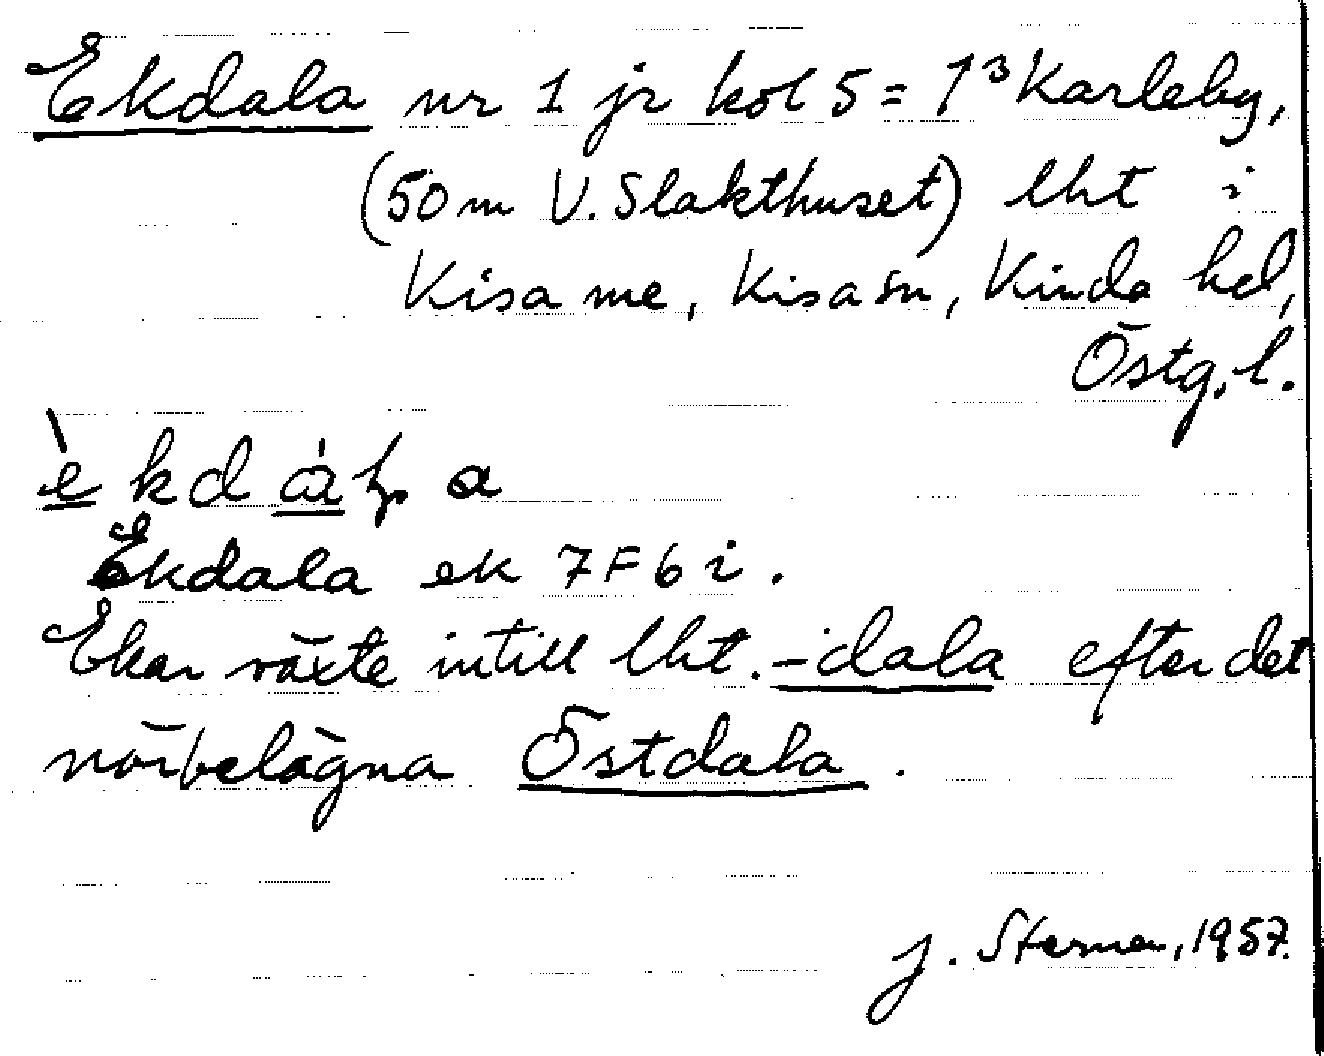 Ekdala nr 1 jr kol 5 = 1³ Karleby,
(50 m V. Slakthuset) lht i
Kisa me, Kisa sn, Kinda hd,
Östg. l.
è k d á ḷ a
Ekdala ek 7F6i.
Ekar växte intill lht. -dala efter det
närbelägna Östdala.
J. Sterner, 1957.